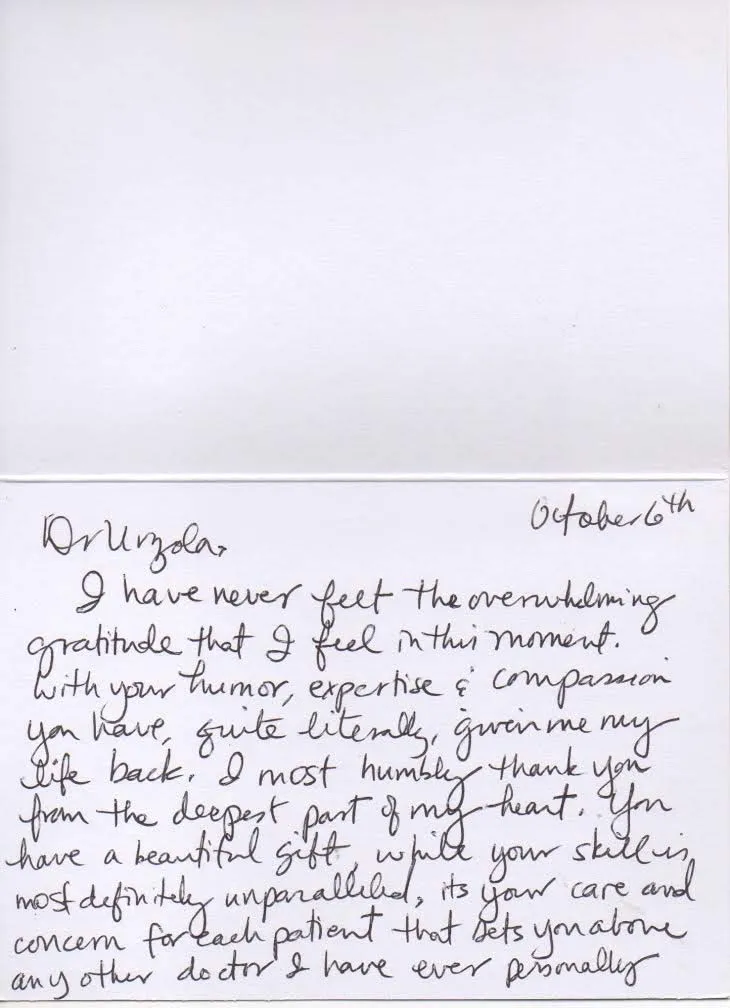 October 6th
Dr Urzola,
I have never felt the overwhelming
gratitude that I feel in this moment.
With your humor, expertise & compassion
you have, quite literally, given me my
life back. I most humbly thank you
from the deepest part of my heart. You
have a beautiful gift, while your skill is
most definitely unparalleled, its your care and
concern for each patient that sets you above
any other doctor I have ever personally